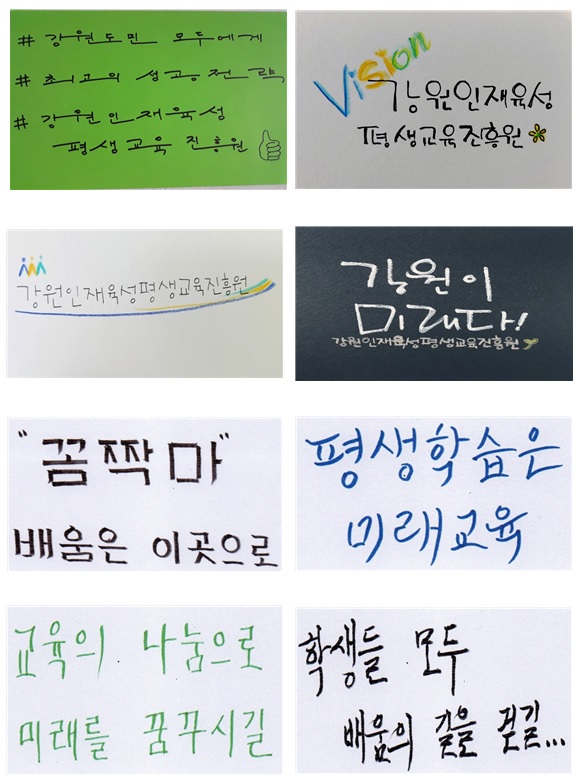 # 강원도민 모두에게
# 최고의 성공전략
# 강원인재육성
평생교육 진흥원
Vision
강원인재육성
평생교육진흥원
강원인재육성평생교육진흥원
강원이
미래다!
강원인재육성평생교육진흥원
"꼼짝마"
배움은 이곳으로
평생학습은
미래교육
교육의 나눔으로
미래를 꿈꾸시길
학생들 모두
배움의 길을 걷길...